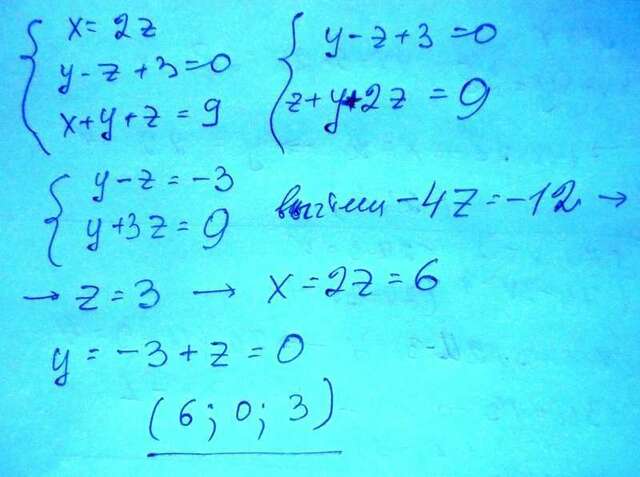 x = 2z
y - z + 3 = 0
x + y + z = 9
y - z + 3 = 0
z + y + 2z = 9
y - z = -3
y + 3z = 9
вычтем -4z = -12 →
→ z = 3 → x = 2z = 6
y = -3 + z = 0
(6; 0; 3)